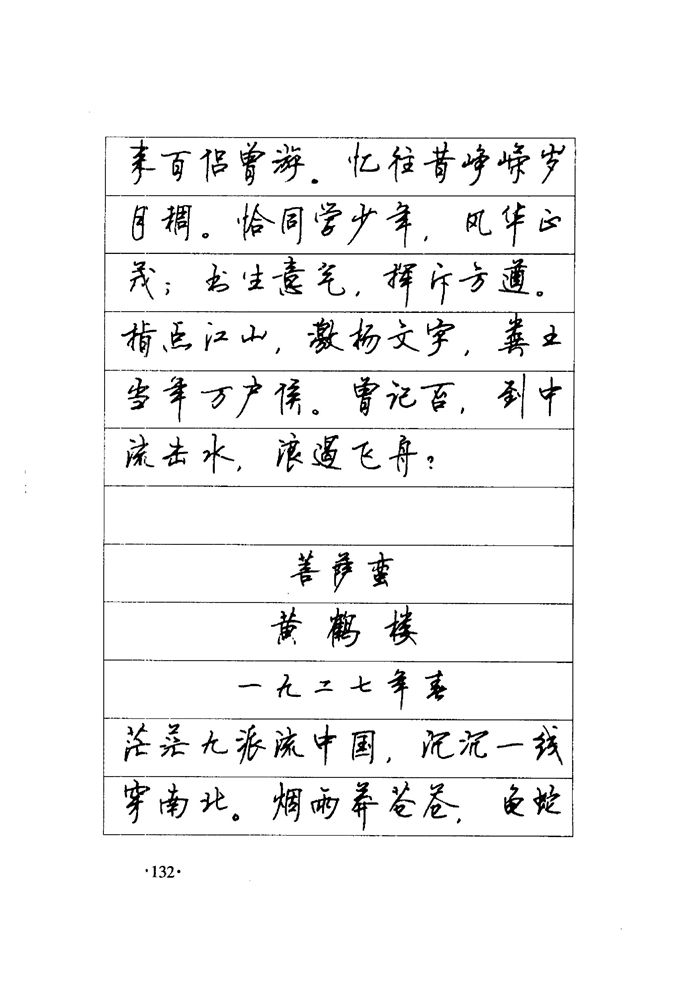 来百侣曾游。忆往昔峥嵘岁
月稠。恰同学少年，风华正
茂；书生意气，挥斥方遒。
指点江山，激扬文字，粪土
当年万户侯。曾记否，到中
流击水，浪遏飞舟？
菩萨蛮
黄鹤楼
一九二七年春
茫茫九派流中国，沉沉一线
穿南北。烟雨莽苍苍，龟蛇
·132·